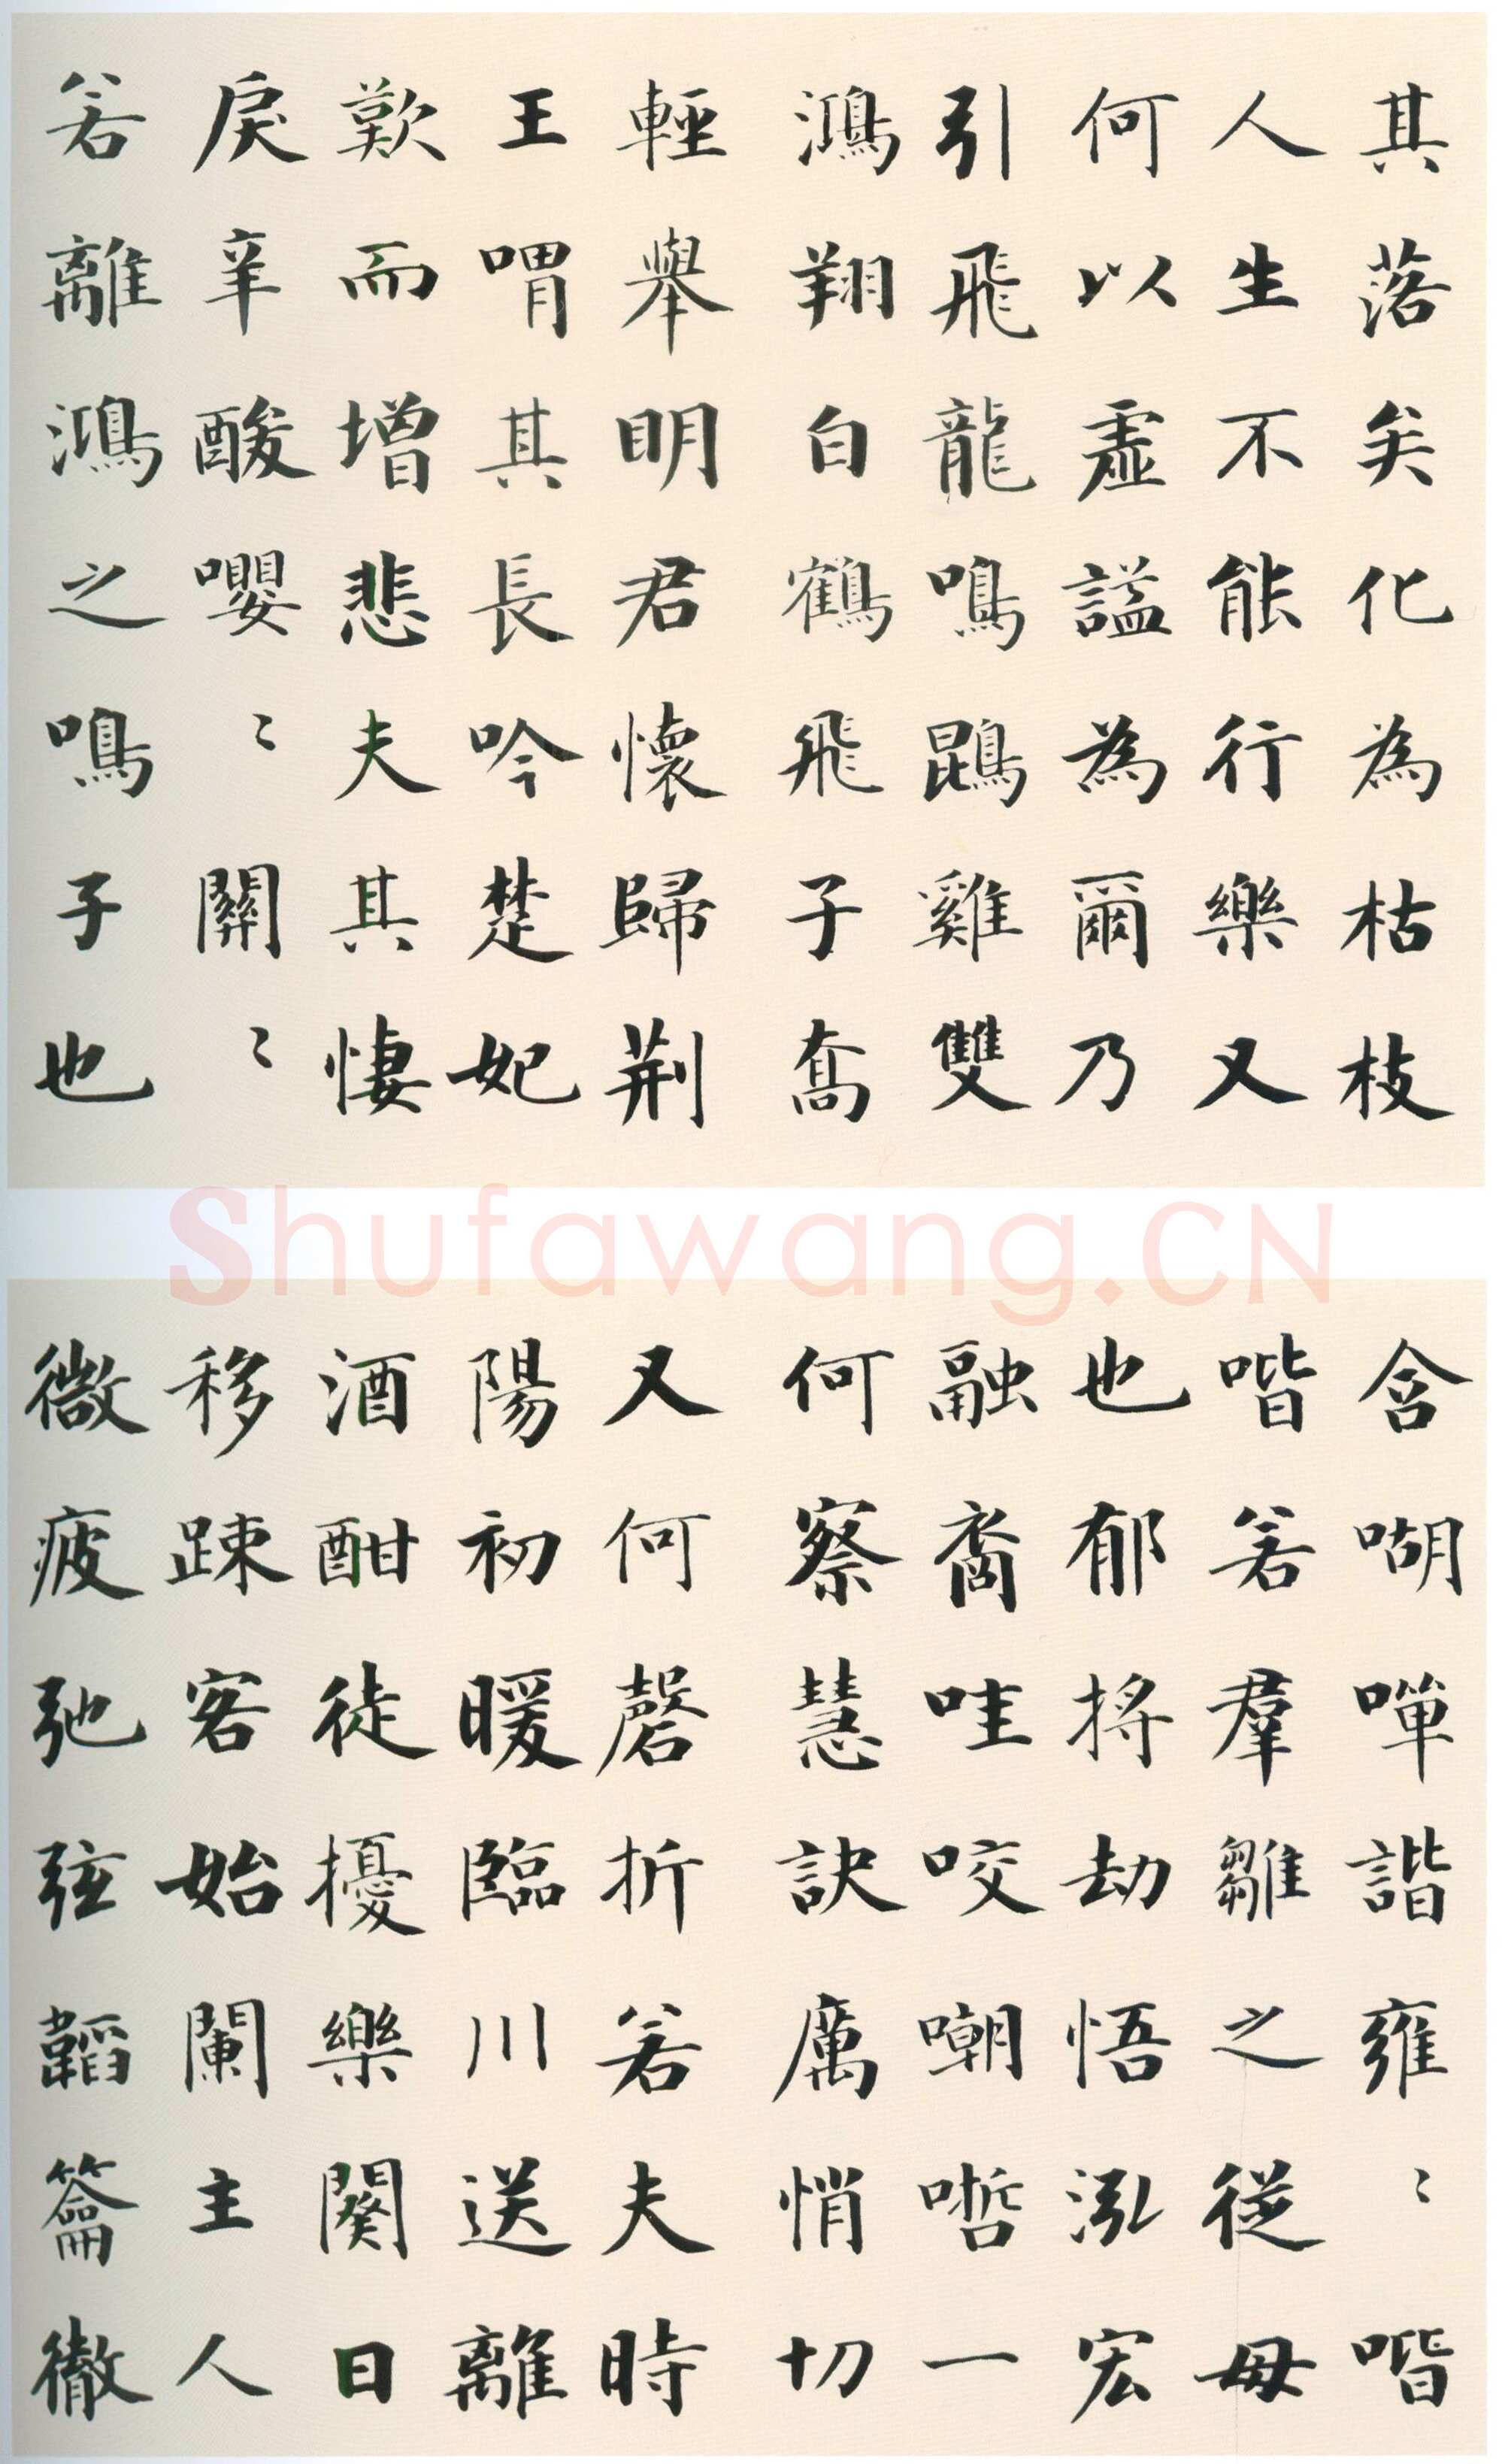 其落矣化為枯枝
人生不能行樂又
何以虛謚為爾乃
引飛龍鳴鵾雞雙
鴻翔白鶴飛子喬
輕舉明君懷歸荆
王喟其長吟楚妃
歎而增悲夫其悽
戾辛酸嚶〻關〻
若離鴻之鳴子也
Shufawang.CN
含嘲嘽諧雍〻喈
喈若羣雛之從母
也郁捋劫悟泓宏
融裔哇咬嘲哳一
何察慧訣厲悄切
又何磬折若夫時
陽初暖臨川送離
酒酣徒擾樂日闋
移踈客始闌主人
微疲弛弦韜籥徹